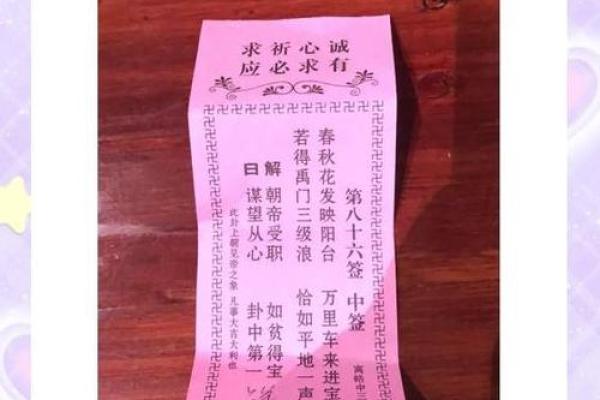 诚心祈求
有求必应
第八十六签 中签
春秋花发映阳台 万里车来进宝
若得禹门三级浪 恰如平地一声
解曰
朝帝受职 如贫得宝
谋望从心 卦中第一
此卦上朝见帝之象 凡事大吉大利也